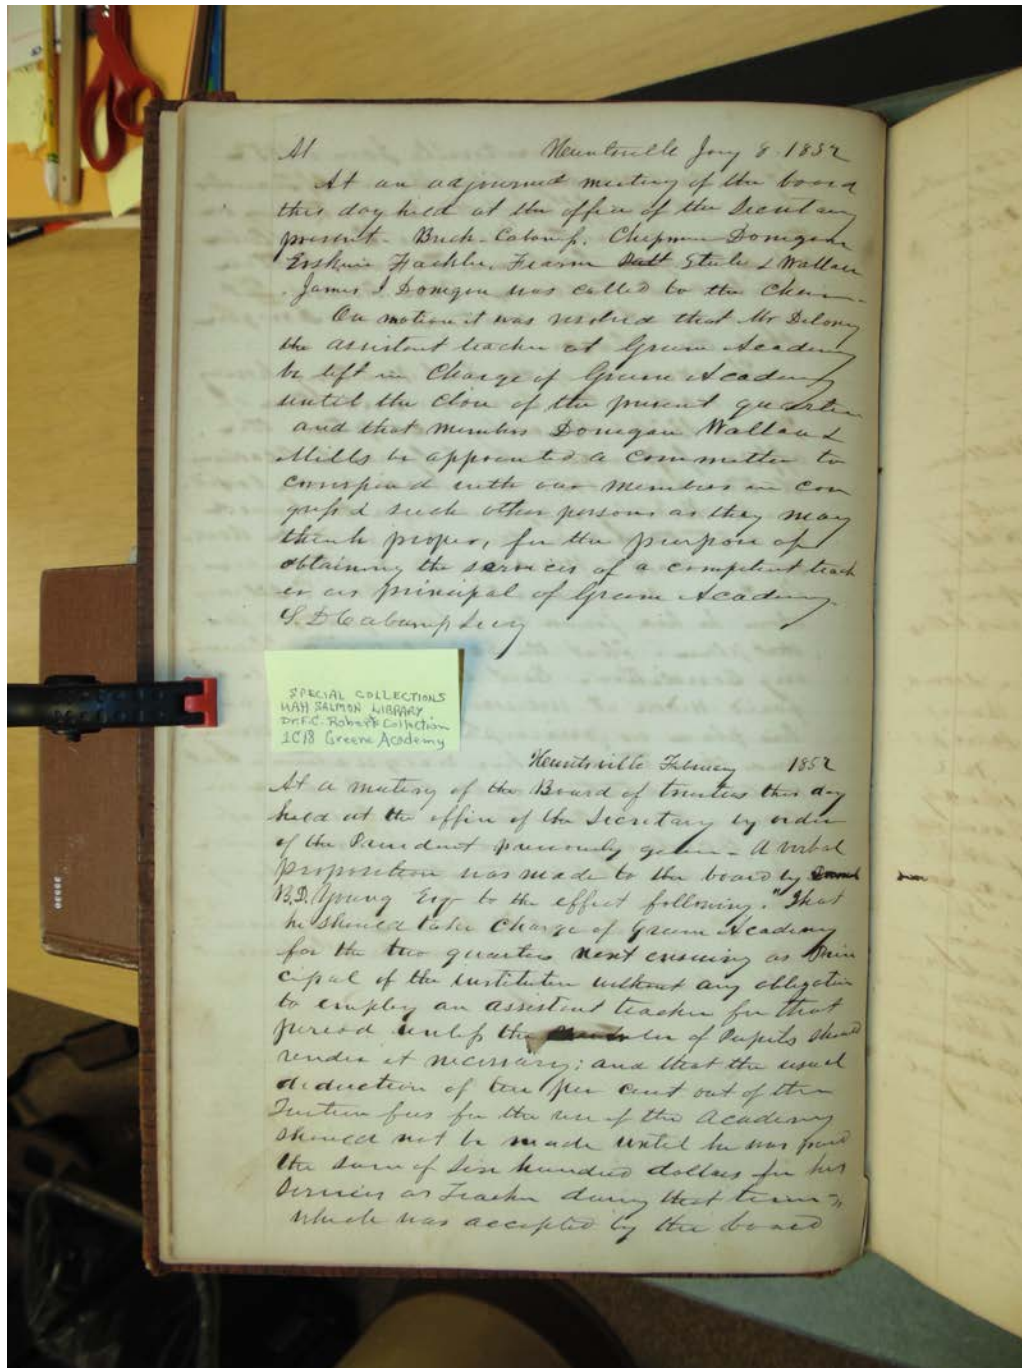 At Huntsville Jany 8. 1852
At an adjourned meeting of the board
this day held at the office of the Secretary
present - Buck - Cabaniss, Chapman Donegan
Erskine Fackler, Fearn Steele & Wallace
James J. Donegan was called to the Chair.
On motion it was resolved that Mr Delony
the assistant teacher at Green Academy
be left in Charge of Green Academy
until the close of the present quarter
and that members Donegan Wallace &
Mills be appointed a committee to
correspond with our members in con
gress & such other persons as they may
think proper, for the purpose of
obtaining the services of a competent teach
er as principal of Green Academy.
S. D Cabaniss Secy
SPECIAL COLLECTIONS
UAH SALMON LIBRARY
Dr. F.C. Roberts Collection
1C18 Greene Academy
Huntsville February 1852
At a meeting of the Board of trustees this day
held at the office of the Secretary by order
of the President previously given - A verbal
proposition was made to the board by
B.D. Young Esqr to the effect following. "That
he should take Charge of Green Academy
for the two quarters next ensuing as Prin
cipal of the institution without any obligation
to employ an assistant teacher for that
period unless the number of Pupils should
render it necessary; and that the usual
deduction of ten per cent out of the
Tuition fees for the use of the Academy
should not be made until he was paid
the sum of Six hundred dollars for his
Services as Teacher during that term",
which was accepted by the board